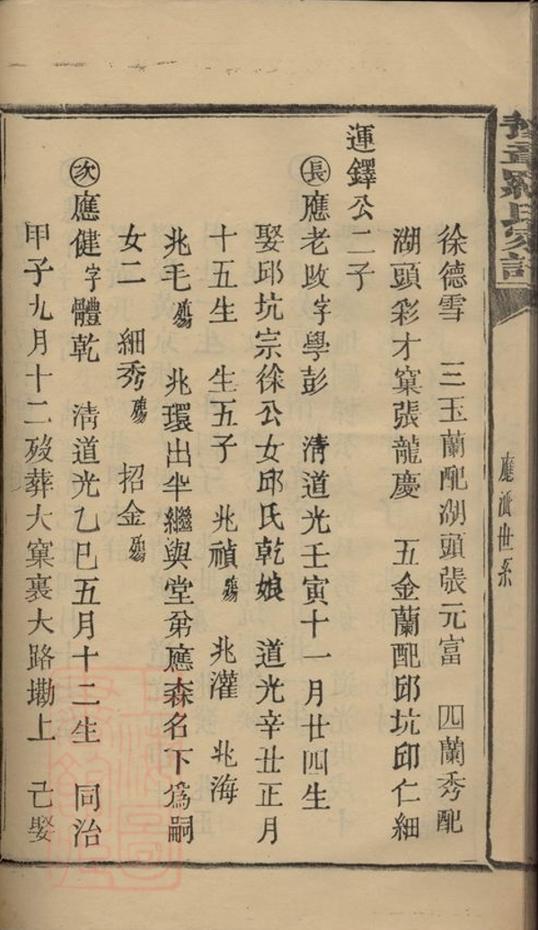 豫章羅氏家譜
應派世系
徐德雪 三玉蘭配湖頭張元富 四蘭秀配
湖頭彩才窠張龍慶 五金蘭配邱坑邱仁細
運鐸公二子
㊤長應老改字學彭 清道光壬寅十一月廿四生
娶邱坑宗徐公女邱氏乾娘 道光辛丑正月
十五生 生五子 兆禎殤 兆灌 兆海
兆毛殤 兆環出半繼與堂弟應森名下爲嗣
女二 細秀殤 招金殤
次應健字體乾 清道光乙巳五月十二生 同治
甲子九月十二歿葬大窠裏大路墈上 已娶